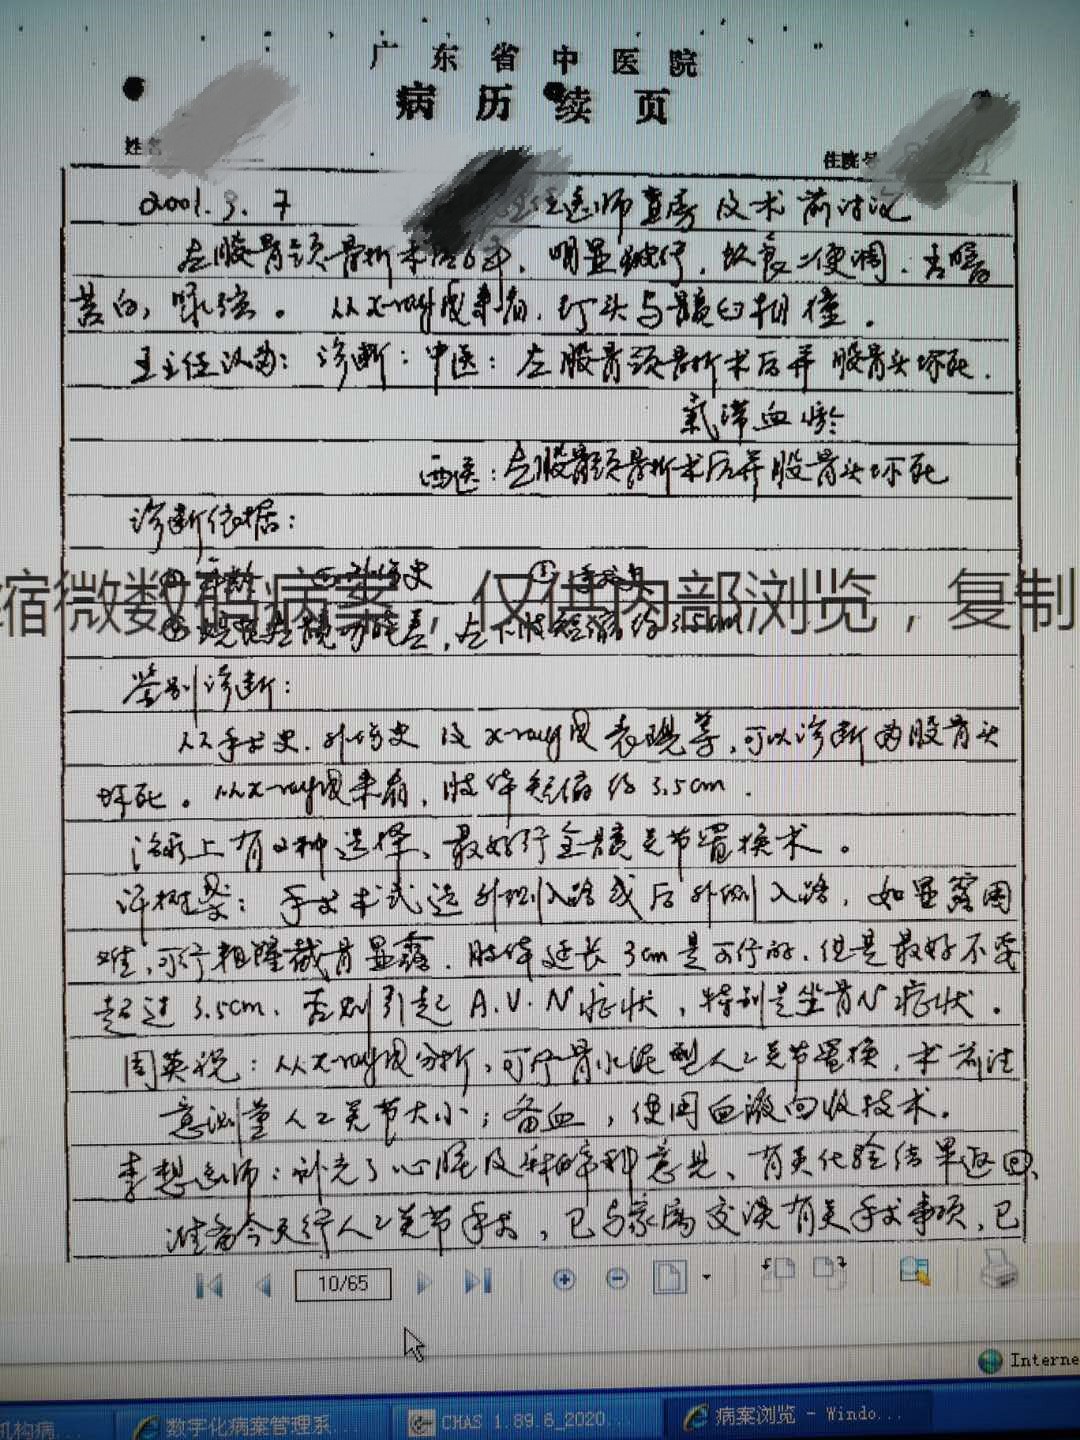 广东省中医院
病历续页
姓名
住院号
2001.9.7 主任医师查房及术前讨论
左股骨颈骨折术后6年，明显跛行，饮食二便调，舌暗
苔白，脉弦。从x-ray片来看，钉头与髋臼相撞。
王主任认为：诊断：中医：左股骨颈骨折术后并股骨头坏死.
氣滞血瘀
西医：左股骨颈骨折术后并股骨头坏死
诊断依据：
外伤史 ① 手术史
左髋功能差，左下肢短缩约3.5cm
缩微数码病案，仅供内部浏览，复制
鉴别诊断：
从手术史.外伤史及x-ray片表现等，可以诊断为股骨头
坏死。从x-ray片来看，肢体短缩约3.5cm.
治疗上有2种选择、最好行全髋关节置换术。
许树柴：手术术式选外侧入路或后外侧入路，如显露困
难，可行粗隆截骨显露.肢体延长3cm是可行的.但是最好不要
超过3.5cm.否则引起A.V.N症状，特别是坐骨N症状。
周英祝：从x-ray片分析，可行骨水泥型人工关节置换，术前注
意测量人工关节大小；备血，使用血液回收技术。
李想医师：补充了心脏及科意见、有关化验结果返回、
准备今天行人工关节手术，已与家属交谈有关手术事项，已
10/65
Interne
机构病...
数字化病案管理系...
CHAS 1.89.6_2020...
病案浏览 - Windo...